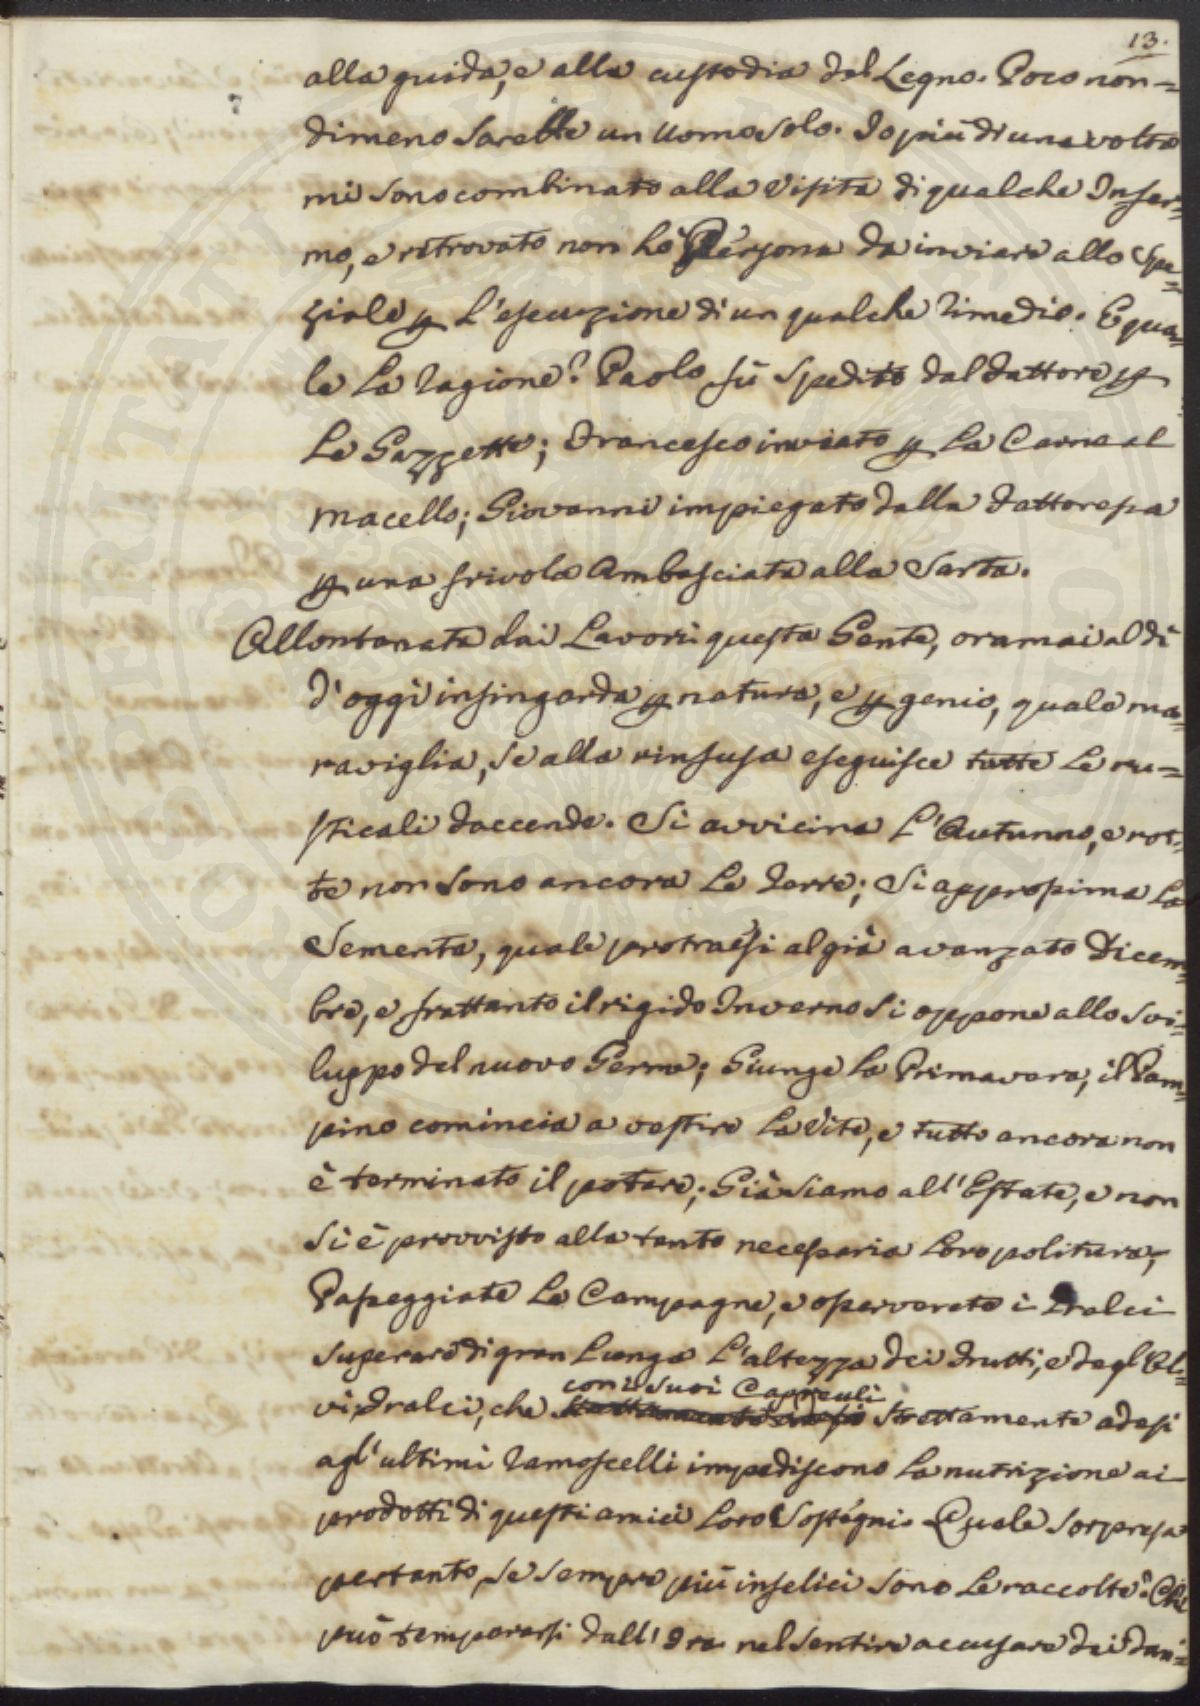 13.
alla guida, e alla custodia del Legno. Poco non=
dimeno Sarebbe un Uomo solo. Io più di una volta
mi sono combinato alla Visita di qualche Infer=
mo, e ritrovato non hò Persona da inviare allo Spe=
ziale p L'esecuzione di un qualche rimedio. E qua=
le La ragione? Paolo fù Spedito dal Fattore p
Le Gazzette; Francesco inviato p La Carne al
macello; Giovanni impiegato dalla Fattoressa
p una frivola Ambasciata alla Sarta.
Allontanata dai Lavori questa Gente, oramai al dì
d'oggi infingarda p natura, e p genio, quale ma=
raviglia, se alla rinfusa eseguisce tutte Le ru=
sticali faccende. Si avvicina L'Autunno, e rot=
te non sono ancora Le Terre; Si approssima La
Sementa, quale protraesi al già avanzato Dicem=
bre, e frattanto il rigido Inverno si oppone allo svi=
luppo del nuovo Germe; Giunge La Primavera, il Pam=
pino comincia a vestire La Vite, e tutto ancora non
è terminato il potare; Già siamo all'Estate, e non
si è provvisto alla tanto necessaria Loro politura;
Passeggiate Le Campagne, e osserverete i Tralci
superare di gran Lunga L'altezza dei Frutti, e degl'Ul=
con i suoi Capreuli
vi, Tralci, che strettamente adesi
agl'ultimi ramoscelli impediscono La nutrizione ai
prodotti di questi amici Loro Sostegni. Quale sorpresa
pertanto, se sempre più infelici sono Le raccolte? Chi
può temperarsi dall'Ira nel sentire accusare dei dan=